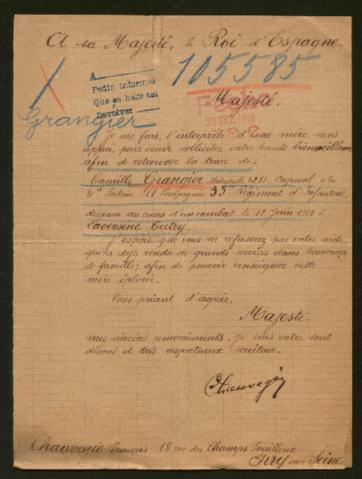 A sa Majesté, le Roi d'Espagne.
105585
A
Pedir informes
Que se hace así
Devolver
Grangier
Majesté
Je me fais, l'interprète d'une mère sans
appui, pour venir solliciter votre haute bienveillance
afin de retrouver la trace de:
Camille Grangier, Matricule 4281 Caporal à la
11e Compagnie 35e Régiment d'Infanterie,
disparu au cours d'un combat le 12 Juin 1918 à
Laversine Cutry
J'espère que vous ne refuserez pas votre aide,
qui a déjà rendu de grands services dans beaucoup
de famille; afin de pouvoir renseigner cette
mère éplorée.
Vous priant d'agréer,
Majesté.
mes sincères remerciements. Je suis votre tout
dévoué et très respectueux serviteur.
Chauvegie François 18 rue des Champs Fouilleux
Ivry sur Seine